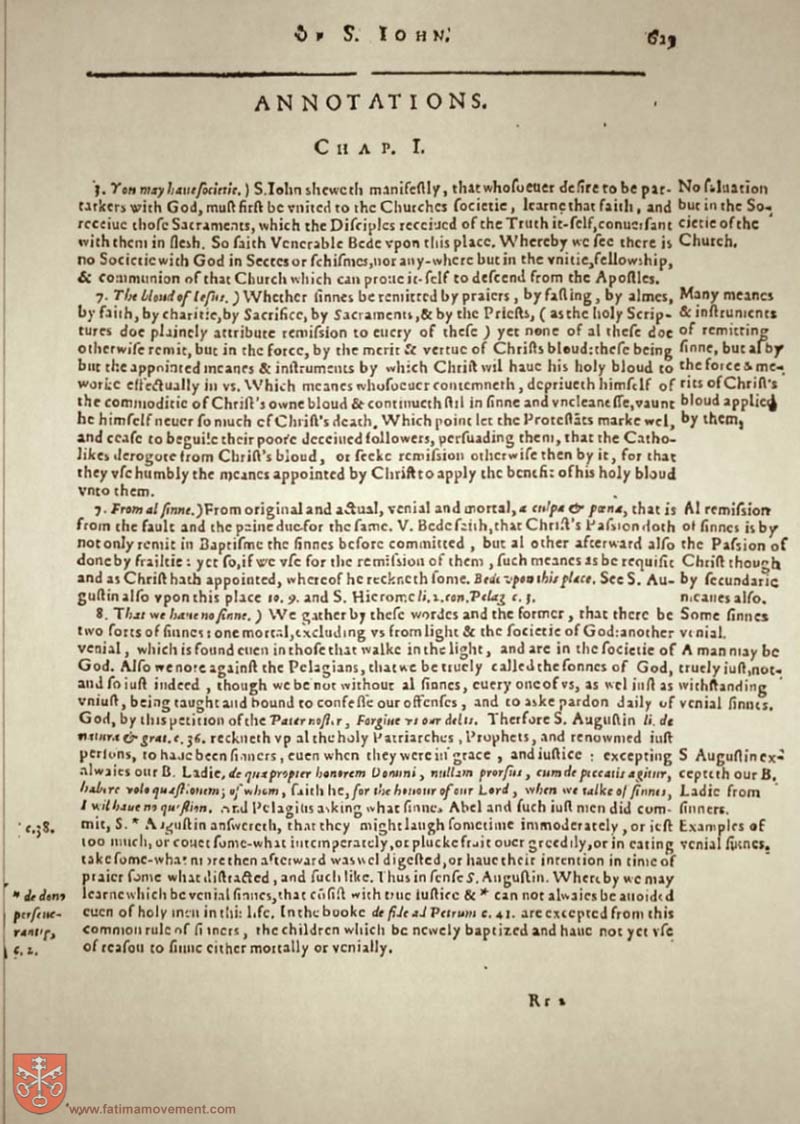 OF S. IOHN.
629
ANNOTATIONS.
CHAP. I.
3. You may haue societie.) S. Iohn sheweth manifestly, that whosoeuer desire to be par-
takers with God, must first be vnited to the Churches societie, learne that faith, and
receiue those Sacraments, which the Disciples receiued of the Truth it-self, conuersant
with them in flesh. So saith Venerable Bede vpon this place. Whereby we see there is
no Societie with God in Sectes or schismes, nor any-where but in the vnitie, fellowship,
& communion of that Church which can proue it-self to descend from the Apostles.
No saluation
but in the So-
cietie of the
Church.
7. The bloud of Iesus.) Whether sinnes be remitted by praiers, by fasting, by almes,
by faith, by charitie, by Sacrifice, by Sacraments, & by the Priests, (as the holy Scrip-
tures doe plainely attribute remission to euery of these) yet none of al these doe
otherwise remit, but in the force, by the merit & vertue of Christs bloud: these being
but the appointed meanes & instruments by which Christ wil haue his holy bloud to
worke effectually in vs. Which meanes whosoeuer contemneth, depriueth himself of
the commoditie of Christ's owne bloud & continueth stil in sinne and vncleanesse, vaunt
he himself neuer so much of Christ's death. Which point let the Protestãts marke wel,
and cease to beguile their poore deceiued followers, persuading them, that the Catho-
likes derogate from Christ's bloud, or seeke remission otherwise then by it, for that
they vse humbly the meanes appointed by Christ to apply the benefit of his holy bloud
vnto them.
Many meanes
& instruments
of remitting
sinne, but al by
the force & me-
rits of Christ's
bloud applied
by them,
7. From al sinne.) From original and actual, venial and mortal, a culpa & pœna, that is
from the fault and the paine due for the same. V. Bede saith, that Christ's Passion doth
not only remit in Baptisme the sinnes before committed, but al other afterward also
done by frailtie: yet so, if we vse for the remission of them, such meanes as be requisit
and as Christ hath appointed, whereof he reckneth some. Bede vpon this place. See S. Au-
gustin also vpon this place to. 9. and S. Hierome li. 2. con. Pelag c. 3.
Al remission
of sinnes is by
the Passion of
Christ though
by secundarie
meanes also.
8. That we haue no sinne.) We gather by these wordes and the former, that there be
two sorts of sinnes: one mortal, excluding vs from light & the societie of God: another
venial, which is found euen in those that walke in the light, and are in the societie of
God. Also we note against the Pelagians, that we be truely called the sonnes of God,
and so iust indeed, though we be not without al sinnes, euery one of vs, as wel iust as
vniust, being taught and bound to confesse our offenses, and to aske pardon daily of
God, by this petition of the Pater noster, Forgiue vs our debts. Therfore S. Augustin li. de
natura & grat. c. 36. reckneth vp al the holy Patriarches, Prophets, and renowmed iust
persons, to haue been sinners, euen when they were in grace, and iustice: excepting
alwaies our B. Ladie, de qua propter honorem Domini, nullam prorsus, cum de peccatis agitur,
habere volo quæstionem; of whom, saith he, for the honour of our Lord, when we talke of sinnes,
I wil haue no question. And Pelagius asking what sinnes Abel and such iust men did com-
mit, S. * Augustin answereth, that they might laugh sometime immoderately, or iest
too much, or couet some-what intemperately, or plucke fruit ouer greedily, or in eating
take some-what more then afterward was wel digested, or haue their intention in time of
praier some what distracted, and such like. Thus in sense S. Augustin. Whereby we may
learne which be venial sinnes, that cõsist with true iustice & * can not alwaies be auoided
euen of holy men in this life. In the booke de fide ad Petrum c. 41. are excepted from this
common rule of sinners, the children which be newely baptized and haue not yet vse
of reason to sinne either mortally or venially.
Some sinnes
venial.
A man may be
truely iust, not-
withstanding
venial sinnes.
S Augustin ex-
cepteth our B.
Ladie from
sinners.
Examples of
venial sinnes.
* c. 38.
* de dono
perseue-
rantię,
c. 2.
Rr 2
www.fatimamovement.com